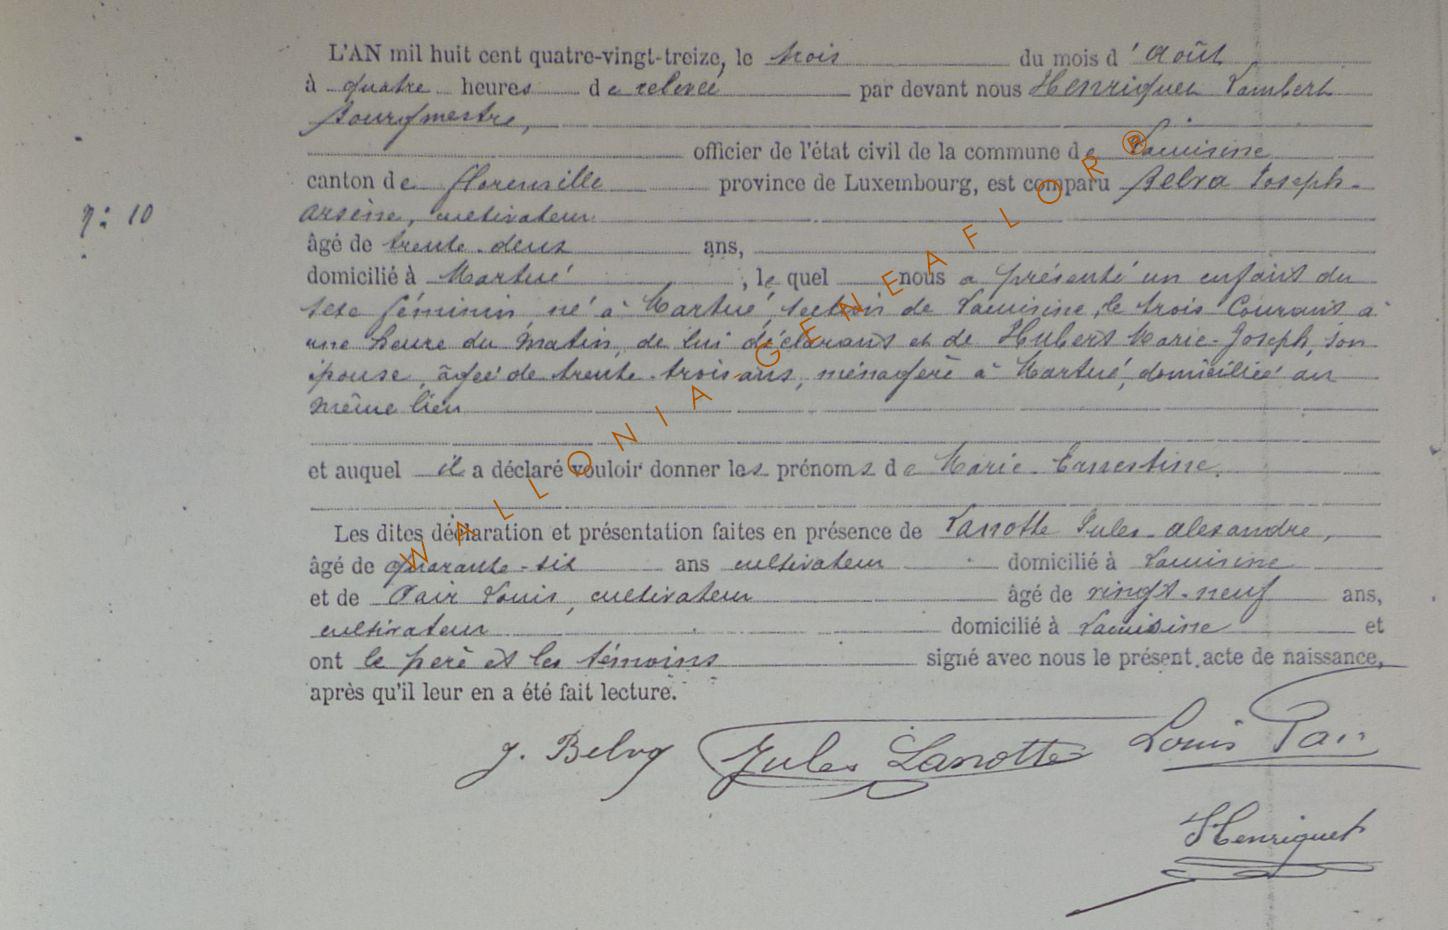 L'AN mil huit cent quatre-vingt-treize, le trois du mois d'Août
à quatre heures de relevée par devant nous Henriquet Lambert
Bourgmestre,
officier de l'état civil de la commune de Lacuisine
canton de florenville province de Luxembourg, est comparu Belva Joseph-
n: 10
arsène, cultivateur
âgé de trente-deux ans,
domicilié à Martué, le quel nous a présenté un enfant du
sexe féminin né à Martué, section de Lacuisine, le trois Courant à
une heure du matin, de lui déclarant et de Hubert Marie-Joseph, son
épouse, âgée de trente-trois ans, ménagère à Martué, domiciliée au
même lieu
et auquel il a déclaré vouloir donner les prénoms de Marie-Ernestine.
Les dites déclaration et présentation faites en présence de Lanotte Jules-alexandre,
âgé de quarante-six ans cultivateur domicilié à Lacuisine
et de Pair Louis, cultivateur âgé de vingt-neuf ans,
cultivateur domicilié à Lacuisine et
ont le père et les témoins signé avec nous le présent acte de naissance,
après qu'il leur en a été fait lecture.
J. Belva Jules Lanotte Louis Pair
Henriquet
WALLONIA-GENEAFLOR®